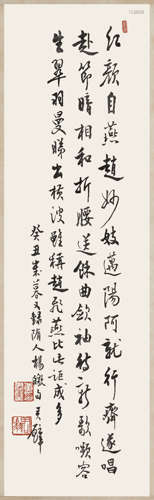 紅顏自燕趙妙妓邁陽阿就行齊逐唱
赴節暗相和折腰送餘曲斂袖待新歌嚬容
生翠羽曼睇出橫波雖稱趙飛燕比此詎成多
癸丑歲暮又錄隋人楊皦句天璧